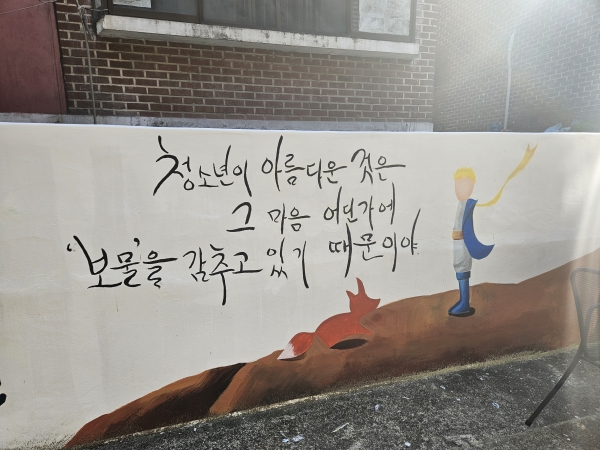 청소년이 아름다운 것은
그 마음 어딘가에
'보물'을 감추고 있기 때문이야